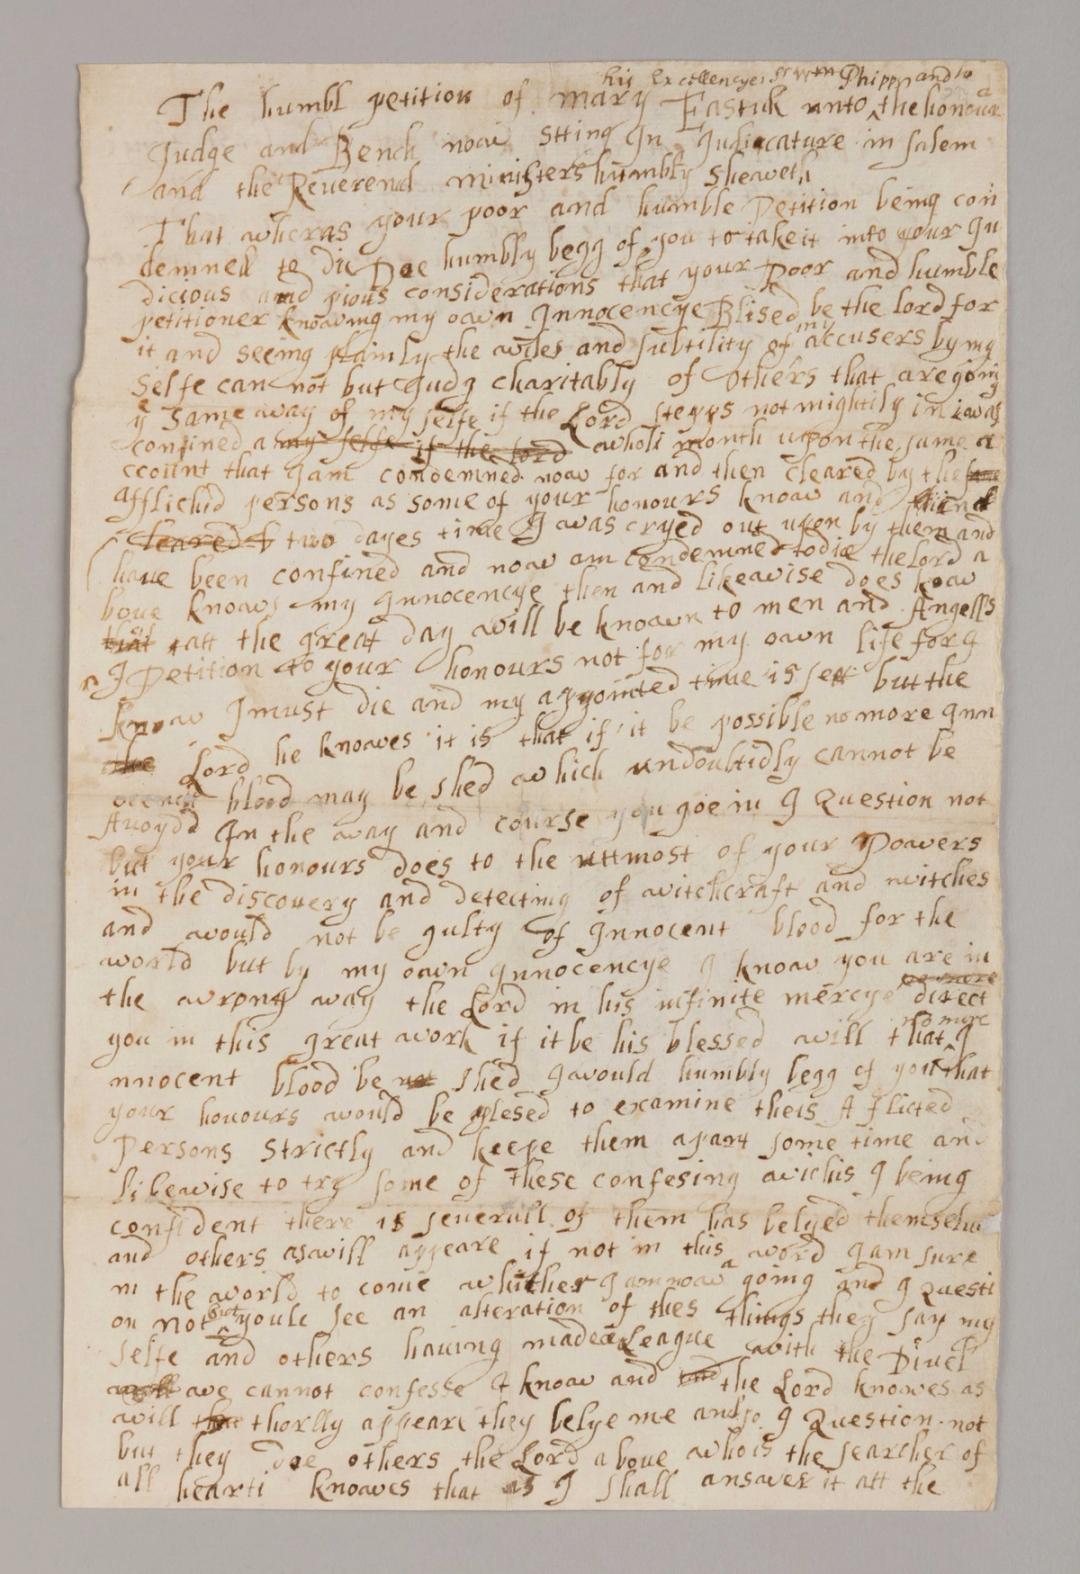 his Excellencyes Sr Wm Phipps and to
The humbl petition of mary Eastick unto the honoura
Judge and Bench now stting In Judicature in Salem
and the Reverend ministers humbly sheweth
That wheras your poor and humble Petition being con
demned to die Doe humbly begg of you to take it into your Ju
dicious and pious considerations that your Poor and humble
petitioner knowing my own Innocencye Blised be the lord for
it and seeing plainly the wiles and subtility of my accusers by my
Selfe can not but Judg charitably of others that are going
ye same way of my selfe if the Lord stepps not mightily in i was
confined a my selfe if the lord wholi month upon the same a
ccount that I am condemned now for and then cleared by the
afflictid persons as some of your honours know and
cleared b two dayes time I was cryed out upon by them and
have been confined and now am condemned to die the Lord a
bove knows my Innocencye then and likewise does know
that att the great day will be known to men and Angells
I Petition to your honours not for my own life for I
know I must die and my appointed time is sett but the
the Lord he knowes it is that if it be possible no more Inn
ocent blood may be shed which undoubtidly cannot be
Avoydd In the way and course you goe in I Question not
but your honours does to the uttmost of your Powers
in the discovery and detecting of witchcraft and witches
and would not be gulty of Innocent blood for the
world but by my own Innocencye I know you are in
the wrong way the Lord in his infinite mercye direct
you in this great work if it be his blessed will that no more I
nnocent blood be not shed I would humbly begg of you that
your honours would be plesed to examine theis Aflicted
Persons strictly and keepe them apart some time and
likewise to try some of these confesing wichis I being
confident there is severall of them has belyed themselves
and others as will appeare if not in this word I am sure
in the world to come whither I am now a going and I Questi
on not but youle see an alteration of thes things they say my
selfe and others having made a League with the Divel
we cannot confesse I know and the Lord knowes as
will thorlly appeare they belye me and so I Question not
but they doe others the Lord above who is the searcher of
all hearts knowes that as I shall answer it att the